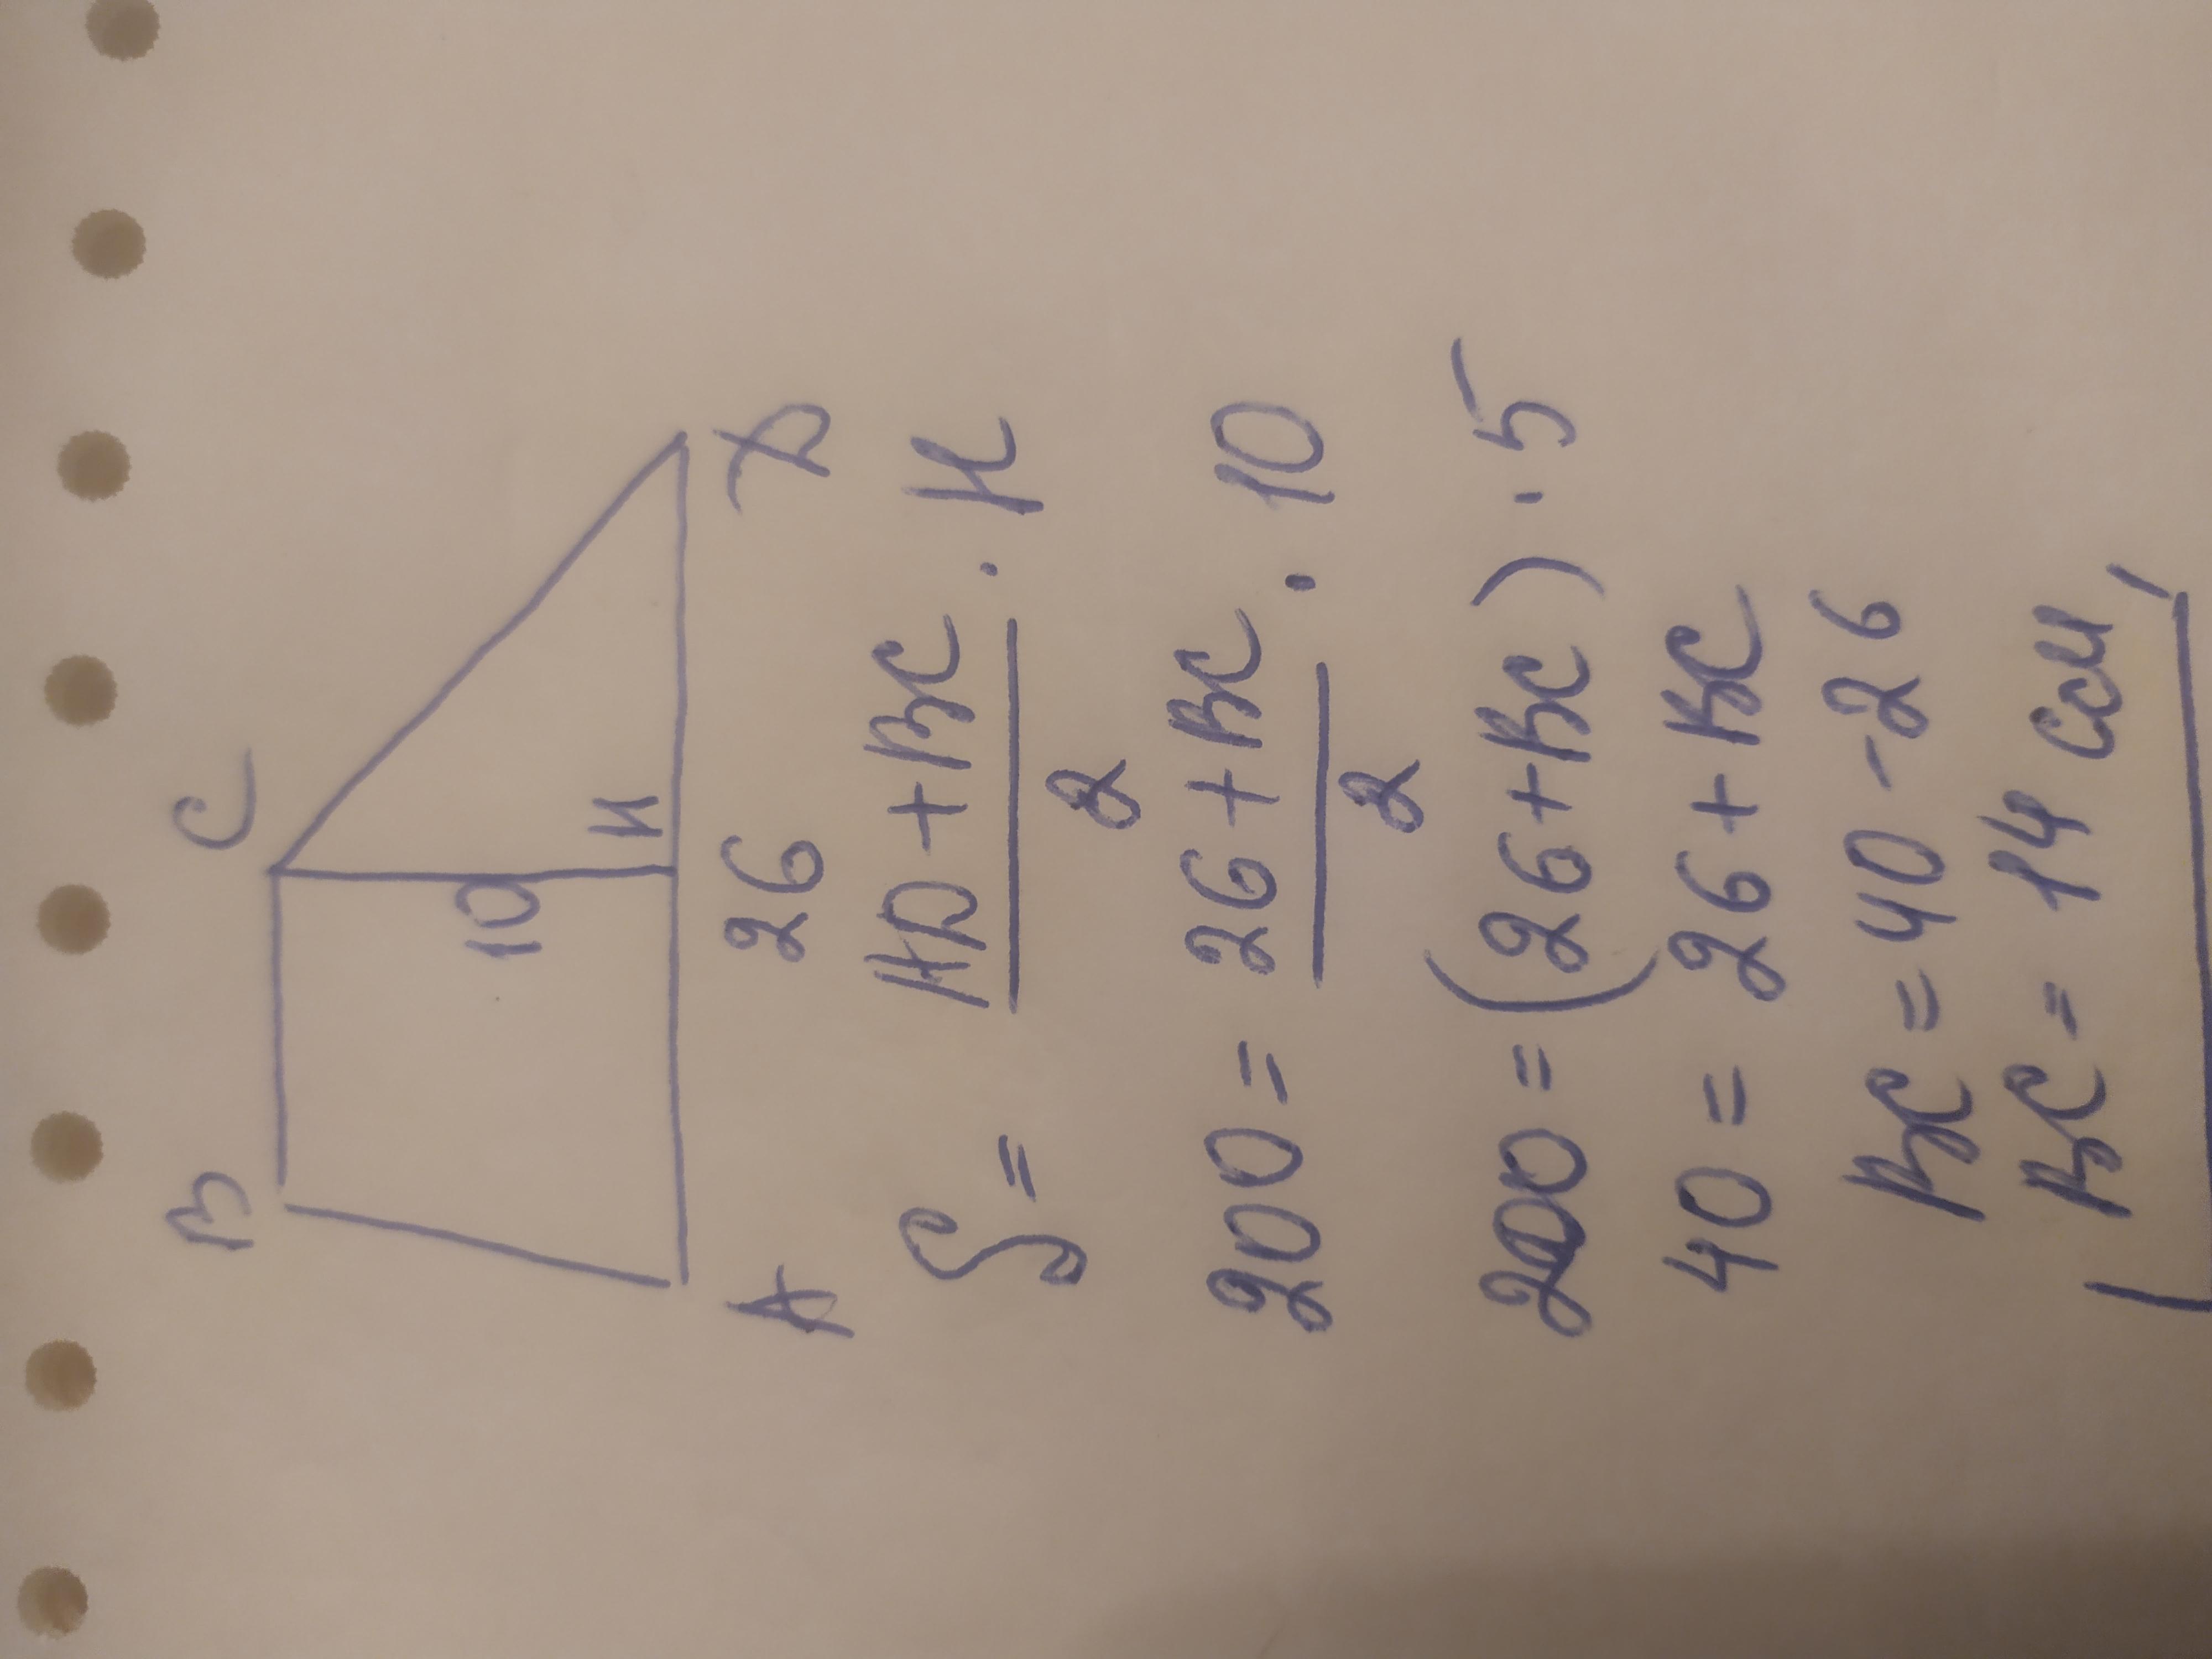 B C
10
H
A 26 D
S = AD + BC / 2 · H
200 = 26 + BC / 2 · 10
200 = (26 + BC) · 5
40 = 26 + BC
BC = 40 - 26
BC = 14 см